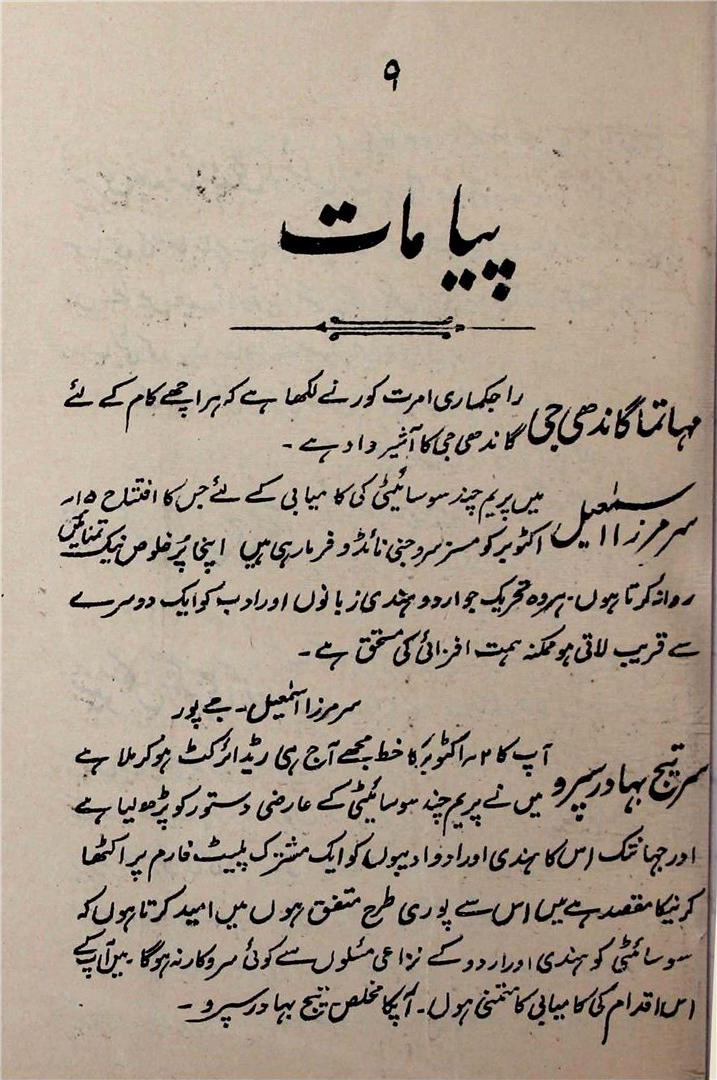 ۹
پیامات
مہاتما گاندھی جی راجکماری امرت کور نے لکھا ہے کہ ہر اچھے کام کے لئے
گاندھی جی کا آشیرواد ہے ۔
سر مرزا اسمٰعیل میں پریم چند سوسائیٹی کی کامیابی کے لئے جس کا افتتاح ۱۵؍
اکتوبر کو مسز سروجنی نائڈو فرما رہی ہیں اپنی پُر خلوص نیک تمنائیں
روانہ کرتا ہوں ۔ ہر وہ تحریک جو اردو ہندی زبانوں اور ادب کو ایک دوسرے
سے قریب لاتی ہو ممکنہ ہمت افزائی کی مستحق ہے ۔
سر مرزا اسمٰعیل ۔ جے پور
سر تیج بہادر سپرو آپ کا ۲؍ اکٹوبر کا خط مجھے آج ہی ریڈائرکٹ ہو کر ملا ہے
میں نے پریم چند سوسائیٹی کے عارضی دستور کو پڑھ لیا ہے
اور جہانتک اس کا ہندی اور اردو ادیبوں کو ایک مشترک پلیٹ فارم پر اکٹھا
کرنیکا مقصد ہے میں اس سے پوری طرح متفق ہوں میں امید کرتا ہوں کہ
سوسائٹی کو ہندی اور اردو کے نزاعی مسئلوں سے کوئی سروکار نہ ہوگا ۔ میں آپ کے
اس اقدام کی کامیابی کا متمنی ہوں ۔ آپکا مخلص تیج بہادر سپرو ۔